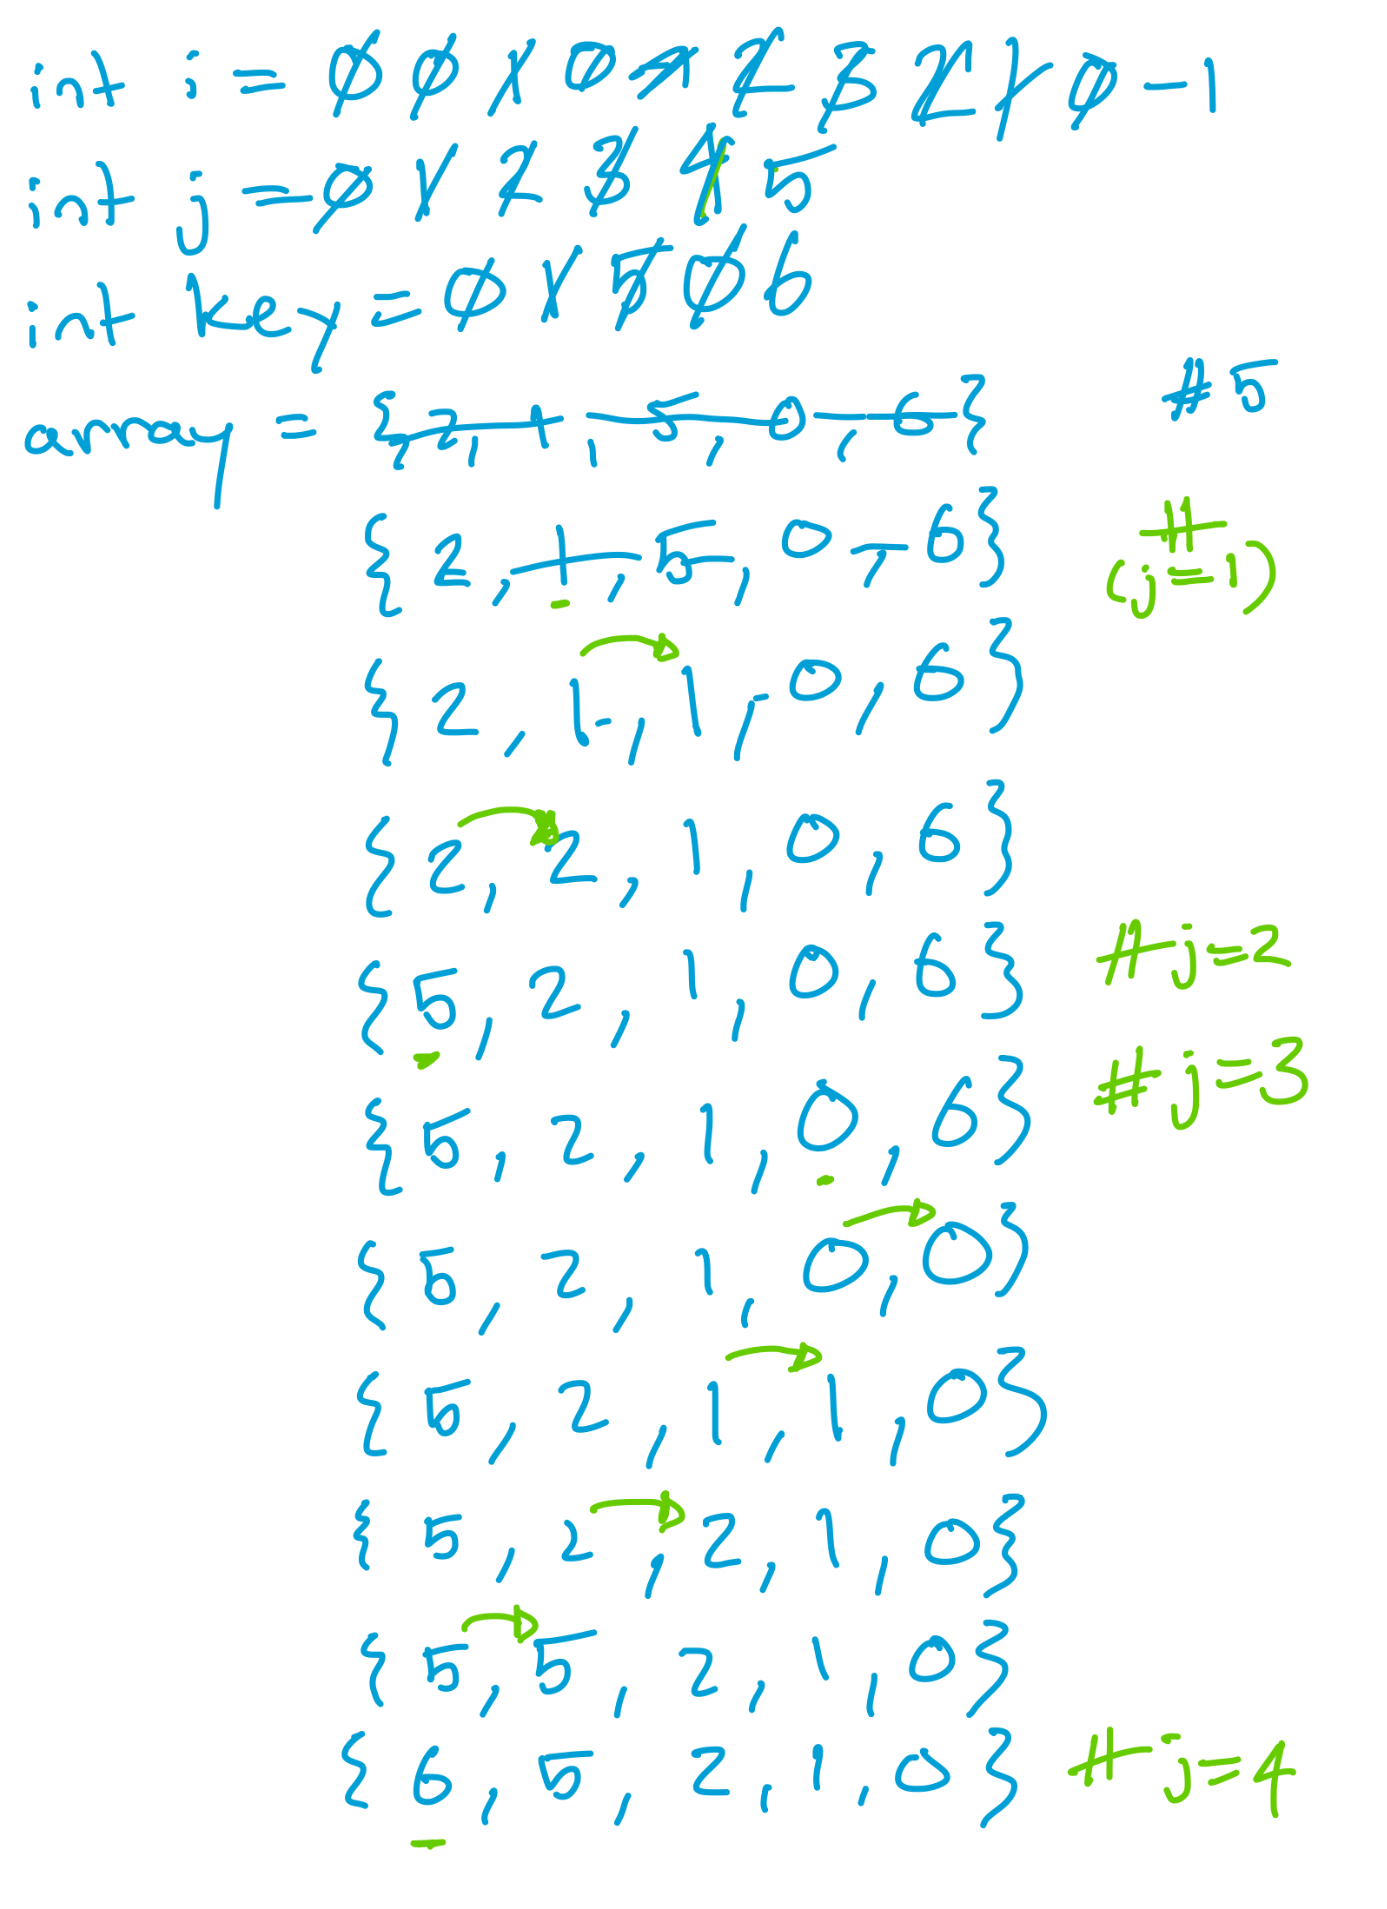 int i = 0 0 1 0 -1 2 3 2 1 0 -1
int j = 0 1 2 3 4 5
int key = 0 1 5 0 6
array = {2, 1, 5, 0, 6} #5
{2, 1, 5, 0, 6} # (j=1)
{2, 1, 1, 0, 6}
{2, 2, 1, 0, 6}
{5, 2, 1, 0, 6} # j=2
{5, 2, 1, 0, 6} # j=3
{5, 2, 1, 0, 0}
{5, 2, 1, 1, 0}
{5, 2, 2, 1, 0}
{5, 5, 2, 1, 0}
{6, 5, 2, 1, 0} # j=4